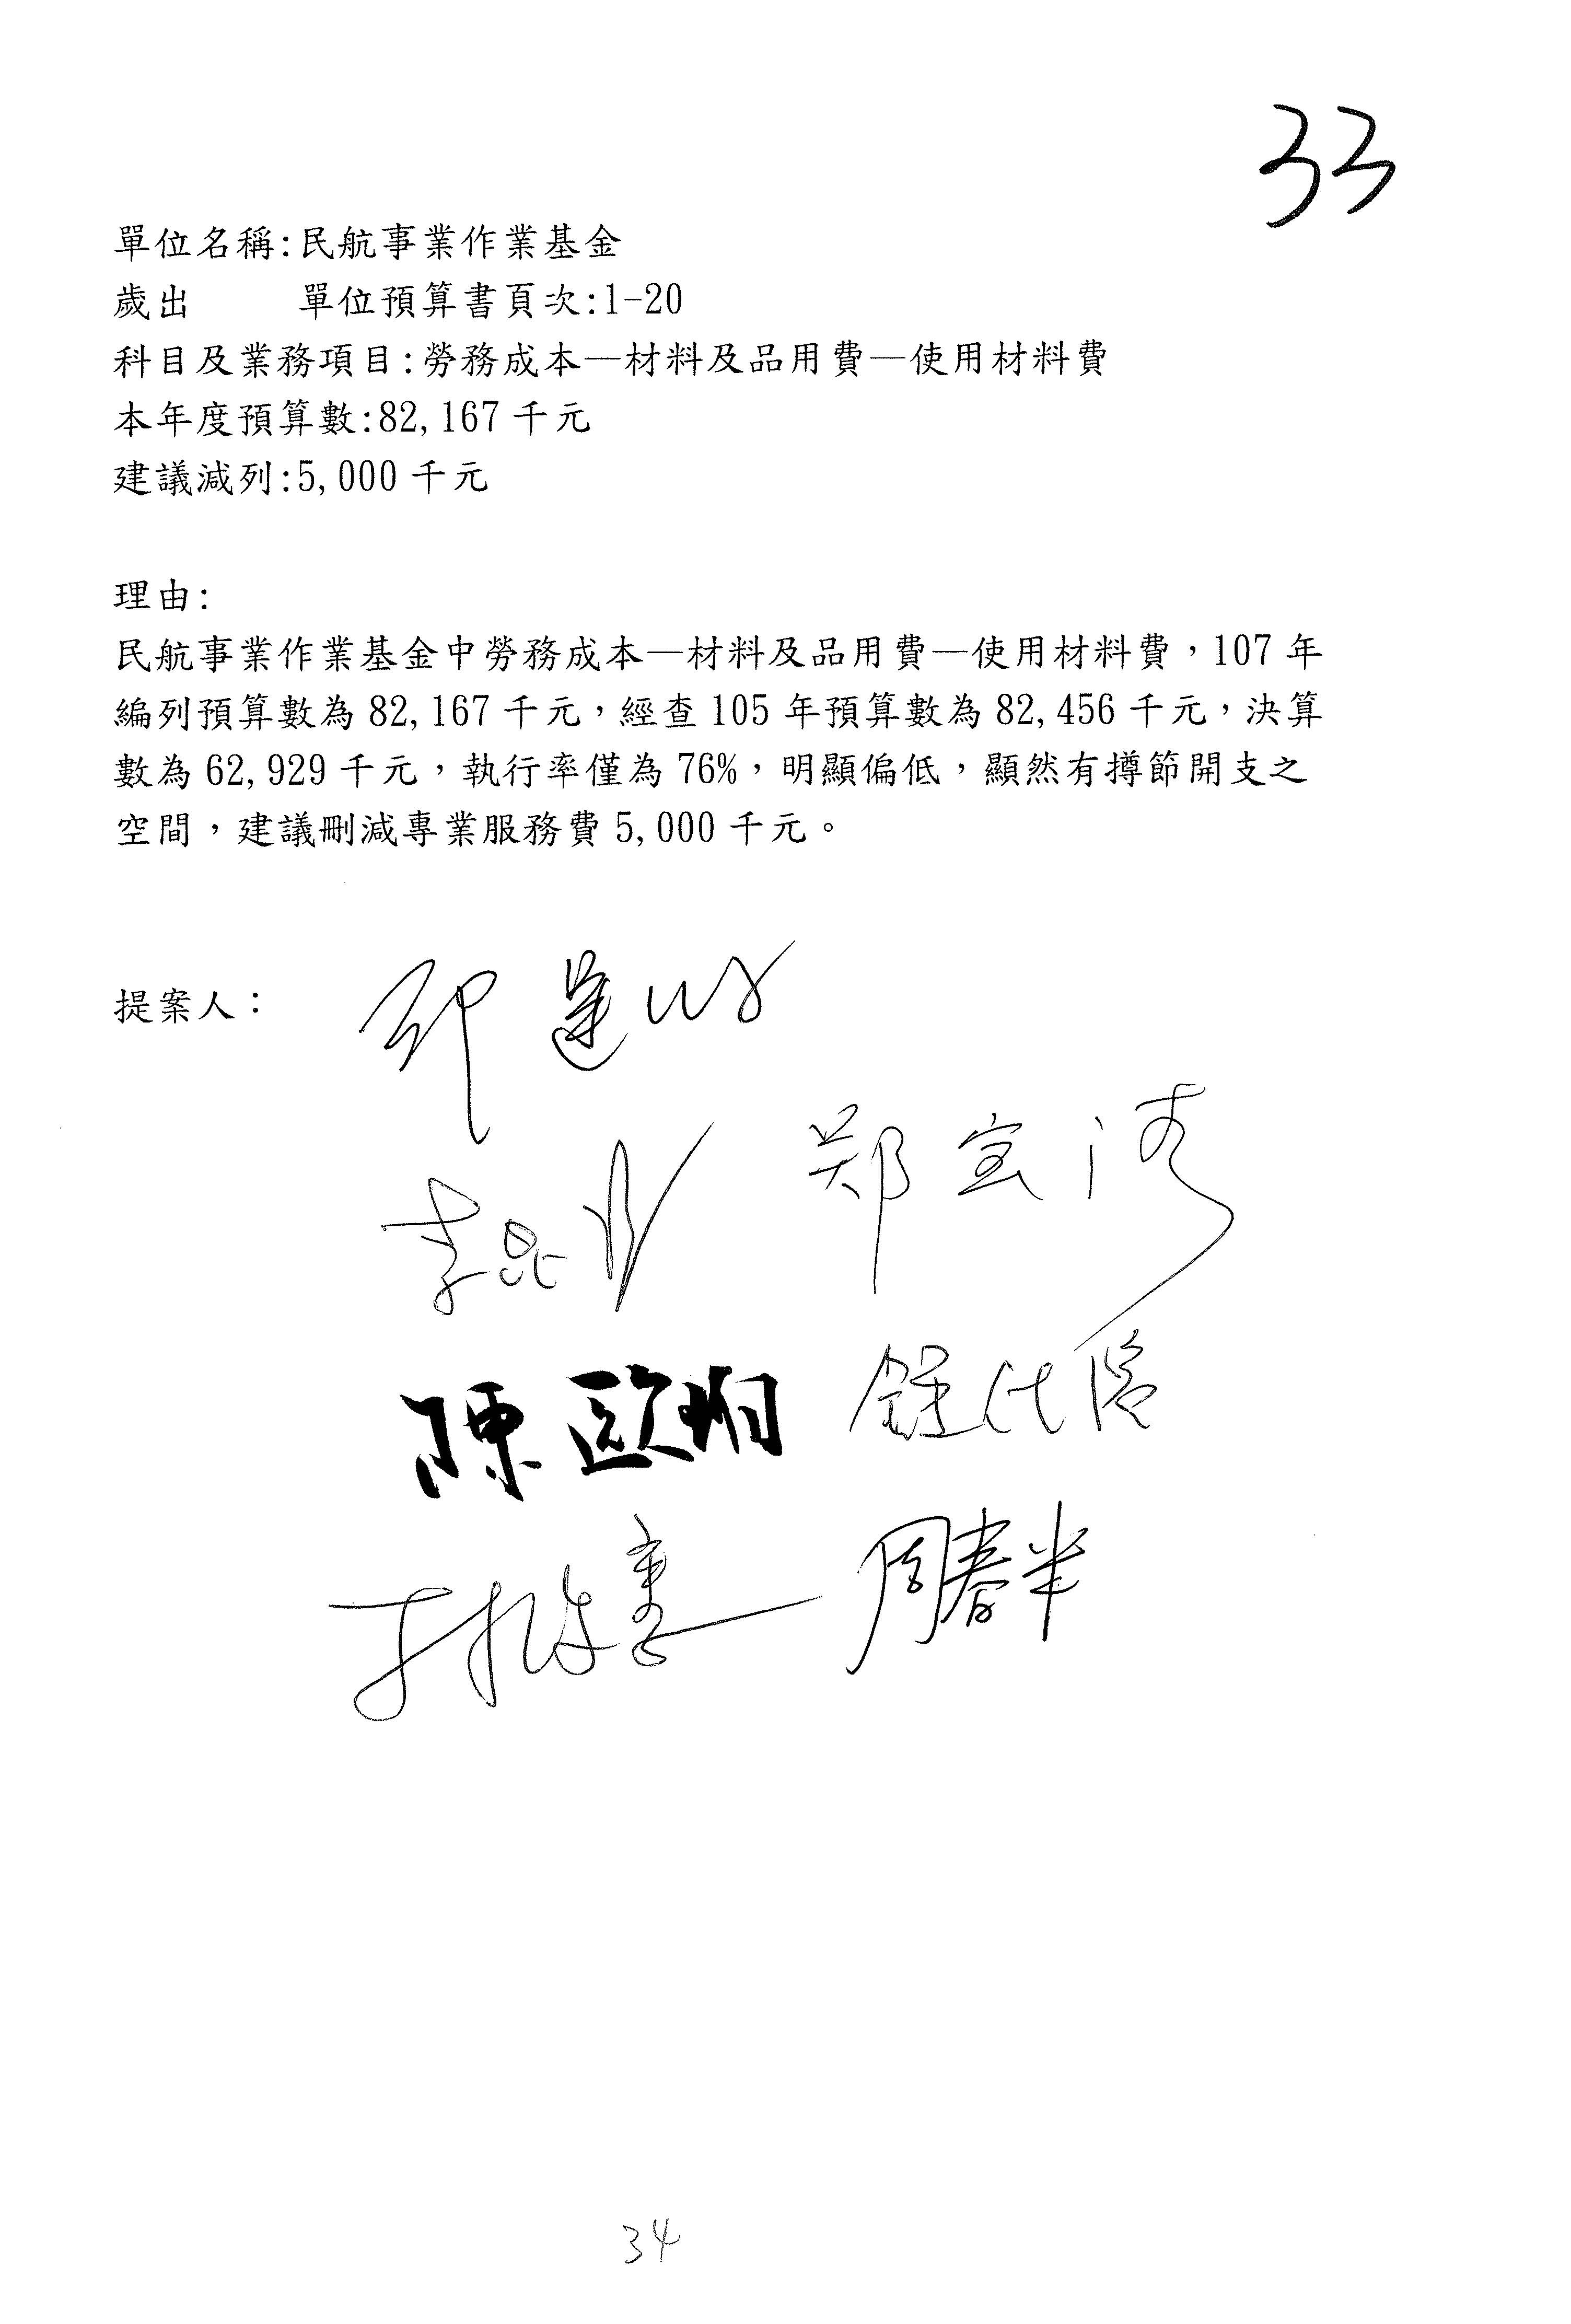 33
單位名稱:民航事業作業基金
歲出　　單位預算書頁次:1-20
科目及業務項目:勞務成本—材料及品用費—使用材料費
本年度預算數:82,167 千元
建議減列:5,000 千元
理由:
民航事業作業基金中勞務成本—材料及品用費—使用材料費，107 年
編列預算數為 82,167 千元，經查 105 年預算數為 82,456 千元，決算
數為 62,929 千元，執行率僅為 76%，明顯偏低，顯然有撙節開支之
空間，建議刪減專業服務費 5,000 千元。
提案人：
鄭宝清
陳歐珀
周春米
34